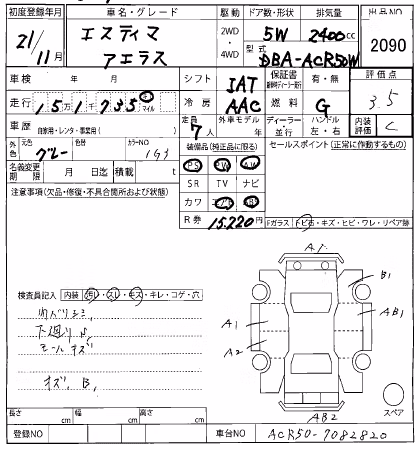 初度登録年月 車名・グレード 駆動 ドア数・形状 排気量 出品NO
21/11月 エスティマ アエラス 2WD・4WD 5W 2400cc 2090
型式 DBA-ACR50W
車検 年 月 シフト IAT 保証書 有・無 評価点 3.5
走行 151,735 km マイル 冷房 AAC 燃料 G
車歴 自家用・レンタ・事業用( ) 定員 7人 外車モデル年 年 ディーラー・並行 ハンドル 左・右 内装評価 C
外色 元色 グレー 色替 カラーNO 1G3 装備品(純正品に限る) セールスポイント(正常に作動するもの)
名義変更期限 月 日迄 積載 t PS PW AW
注意事項(欠品・修復・不具合箇所および状態) SR TV ナビ
カワ エアB
R券 15,220円 Fガラス トビ石・キズ・ヒビ・ワレ・リペア跡
A1
B1
検査員記入 内装 汚レ・スレ・キズ・キレ・コゲ・穴
A1 AB1
下廻りS
A2
モールキズ
キズ、B、
スペア
AB2
長さ cm 幅 cm 高さ cm
登録NO 車台NO ACR50-7082820